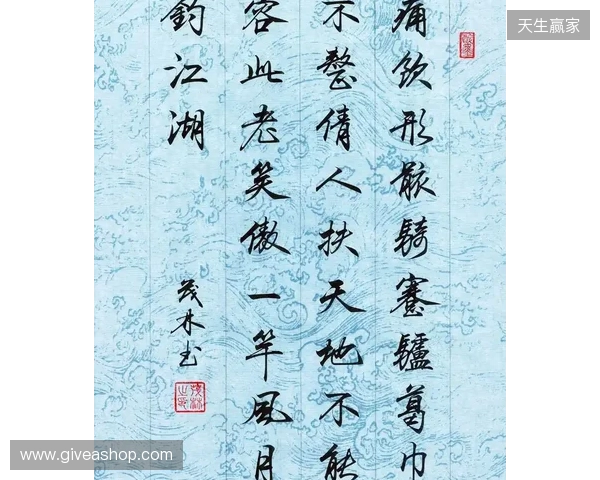 痛飲形骸騎蹇驢葛巾
不整倩人扶天地不能
容此老笑傲一竿風月
釣江湖
茂林书
天生赢家
www.giveashop.com